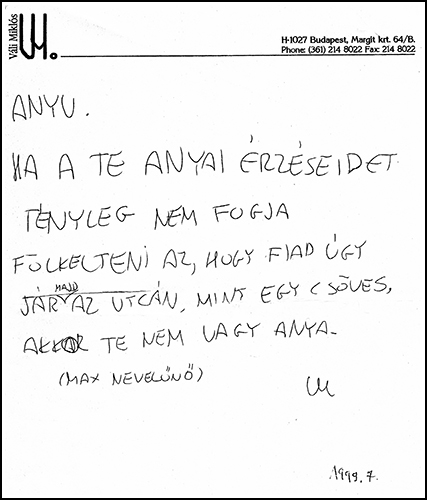 Váli Miklós
H-1027 Budapest, Margit krt. 64/B.
Phone: (361) 214 8022 Fax: 214 8022
ANYU.
HA A TE ANYAI ÉRZÉSEIDET
TÉNYLEG NEM FOGJA
FÖLKELTENI AZ, HOGY FIAD ÚGY
JÁR MAJD AZ UTCÁN, MINT EGY CSÖVES,
AKKOR TE NEM VAGY ANYA.
(MAX NEVELŐNŐ)
1999. 7.